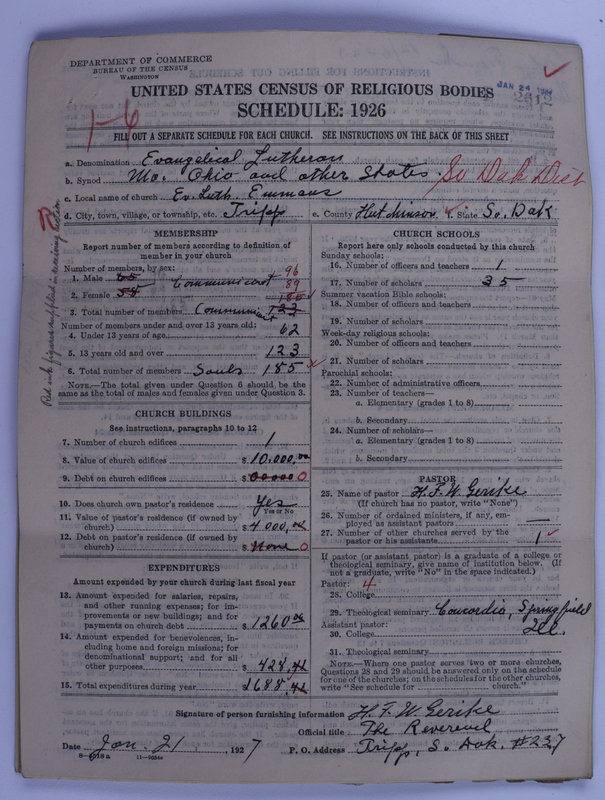 DEPARTMENT OF COMMERCE
BUREAU OF THE CENSUS
WASHINGTON
JAN 24 1927
2612
UNITED STATES CENSUS OF RELIGIOUS BODIES
SCHEDULE: 1926
1-6
FILL OUT A SEPARATE SCHEDULE FOR EACH CHURCH. SEE INSTRUCTIONS ON THE BACK OF THIS SHEET
a. Denomination Evangelical Lutheran
b. Synod Mo. Ohio and other States So Dak Dist
c. Local name of church Ev. Luth. Emmaus
d. City, town, village, or township, etc. Tripp e. County Hutchinson f. State So. Dak
MEMBERSHIP
Report number of members according to definition of member in your church
Number of members, by sex: 96
1. Male 65 Communicant 89
2. Female 58 185
3. Total number of members Communicant 123
Number of members under and over 13 years old:
4. Under 13 years of age 62
5. 13 years old and over 123
6. Total number of members Souls 185
NOTE.—The total given under Question 6 should be the
same as the total of males and females given under Question 3.
Red ink figures supplied in reviewing
CHURCH BUILDINGS
See instructions, paragraphs 10 to 12
7. Number of church edifices 1
8. Value of church edifices $ 10,000.00
9. Debt on church edifices $ 00000 0
10. Does church own pastor's residence Yes
Yes or No
11. Value of pastor's residence (if owned by
church) $ 4000,00
12. Debt on pastor's residence (if owned by
church) $ None 0
EXPENDITURES
Amount expended by your church during last fiscal year
13. Amount expended for salaries, repairs,
and other running expenses; for im-
provements or new buildings; and for
payments on church debt $ 1260 00
14. Amount expended for benevolences, in-
cluding home and foreign missions; for
denominational support; and for all
other purposes $ 428,41
15. Total expenditures during year $ 1688,41
CHURCH SCHOOLS
Report here only schools conducted by this church
Sunday schools:
16. Number of officers and teachers 1
17. Number of scholars 35
Summer vacation Bible schools:
18. Number of officers and teachers
19. Number of scholars
Week-day religious schools:
20. Number of officers and teachers
21. Number of scholars
Parochial schools:
22. Number of administrative officers
23. Number of teachers—
a. Elementary (grades 1 to 8)
b. Secondary
24. Number of scholars—
a. Elementary (grades 1 to 8)
b. Secondary
PASTOR
25. Name of pastor H. F. W. Gerike
(If church has no pastor, write "None")
26. Number of ordained ministers, if any, em-
ployed as assistant pastors —
27. Number of other churches served by the
pastor or his assistants 1
If pastor (or assistant pastor) is a graduate of a college or
theological seminary, give name of institution below. (If
not a graduate, write "No" in the space indicated.)
Pastor: 4
28. College
29. Theological seminary Concordia, Springfield
Assistant pastor: Ill.
30. College
31. Theological seminary
NOTE.—Where one pastor serves two or more churches,
Questions 28 and 29 should be answered only on the schedule
for one of the churches; on the schedules for the other churches,
write "See schedule for church."
Signature of person furnishing information H. F. W. Gerike
Official title The Reverend
Date Jan. 21, 1927 P. O. Address Tripp, S. Dak. #237
8—6519a 11—9054a